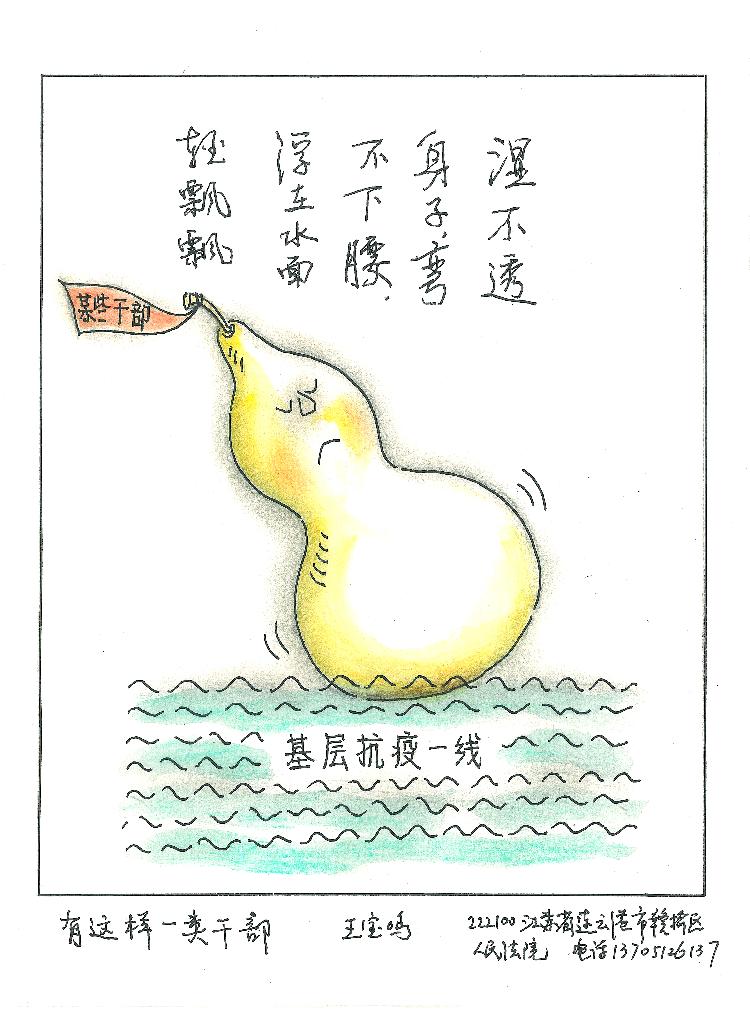 湿不透
身子,弯
不下腰,
浮在水面
轻飘飘
某些干部
基层抗疫一线
有这样一类干部 王宝鸣 222100江苏省连云港市赣榆区
人民法院 电话13705126137